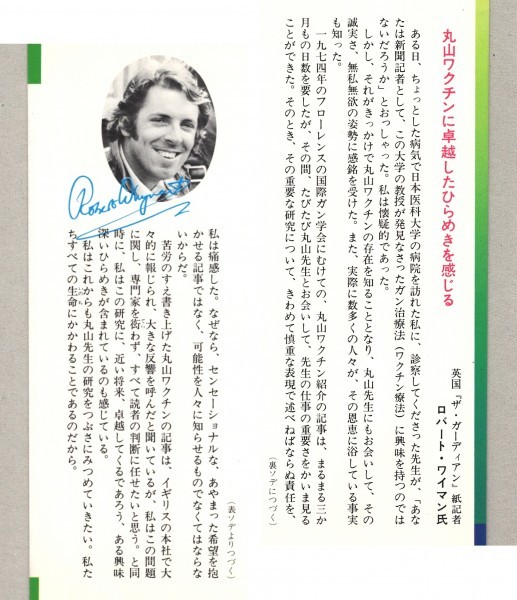 丸山ワクチンに卓越したひらめきを感じる
英国『ザ・ガーディアン』紙記者
ロバート・ワイマン氏
ある日、ちょっとした病気で日本医科大学の病院を訪れた私に、診察してくださった先生が、「あな
たは新聞記者として、この大学の教授が発見なさったガン治療法（ワクチン療法）に興味を持つのでは
ないだろうか」とおっしゃった。私は懐疑的であった。
しかし、それがきっかけで丸山ワクチンの存在を知ることとなり、丸山先生にもお会いして、その
誠実さ、無私無欲の姿勢に感銘を受けた。また、実際に数多くの人々が、その恩恵に浴している事実
も知った。
一九七四年のフローレンスの国際ガン学会にむけての、丸山ワクチン紹介の記事は、まるまる三か
月もの日数を要したが、その間、たびたび丸山先生とお会いして、先生の仕事の重要さをかいま見る
ことができた。そのとき、その重要な研究について、きわめて慎重な表現で述べねばならぬ責任を、
（裏ソデにつづく）
（表ソデよりつづく）
私は痛感した。なぜなら、センセーショナルな、あやまった希望を抱
かせる記事ではなく、可能性を人々に知らせるものでなくてはならな
いからだ。
苦労のすえ書き上げた丸山ワクチンの記事は、イギリスの本社で大
々的に報じられ、大きな反響を呼んだと聞いているが、私はこの問題
に関し、専門家を衒わず、すべて読者の判断に任せたいと思う。と同
時に、私はこの研究に、近い将来、卓越してくるであろう、ある興味
深いひらめきが含まれているのも感じている。
私はこれからも丸山先生の研究をつぶさにみつめていきたい。私た
ちすべての生命にかかわることであるのだから。